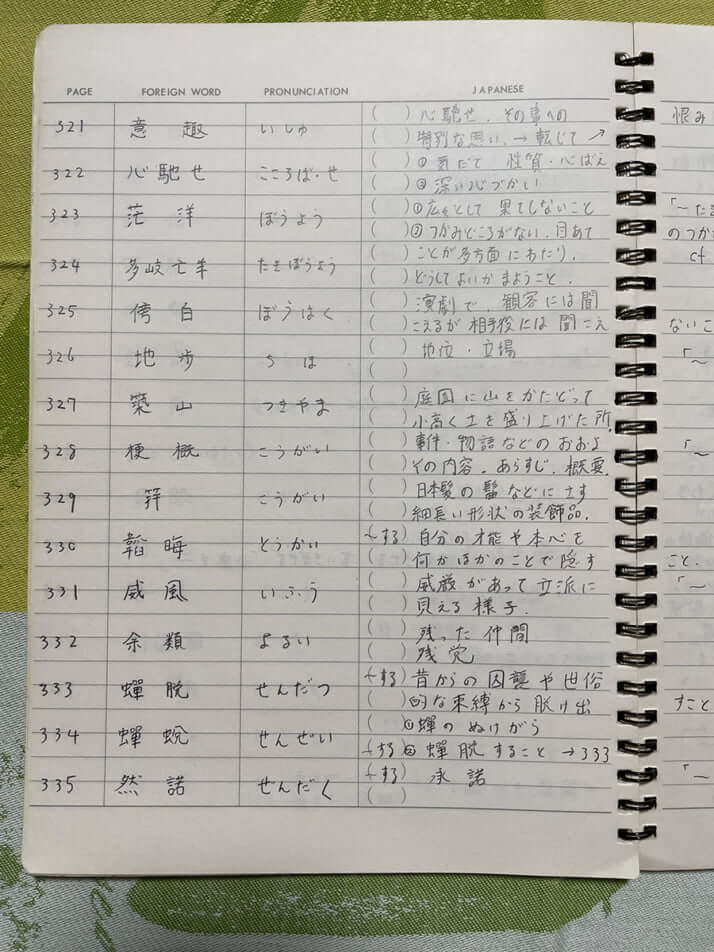 PAGE FOREIGN WORD PRONUNCIATION JAPANESE
321 意趣 いしゅ ( ) 心馳せ. その事への
( ) 特別な思い, → 転じて ↗
322 心馳せ こころば・せ ( ) ① 気だて 性質・心ばえ
( ) ② 深い心づかい
323 茫洋 ぼうよう ( ) ① 広々として 果てしないこと
( ) ② つかみどころがない. 目あて
324 多岐亡羊 たきぼうよう ( ) ことが多方面にわたり.
( ) どうしてよいかまようこと.
325 傍白 ぼうはく ( ) 演劇で, 観客には聞
( ) こえるが相手役には聞こえ
326 地歩 ちほ ( ) 地位・立場
( )
327 築山 つきやま ( ) 庭園に山をかたどって
( ) 小高く土を盛り上げた所.
328 梗概 こうがい ( ) 事件・物語などのおおよ
( ) その内容. あらすじ. 概要.
329 笄 こうがい ( ) 日本髪の髷などにさす
( ) 細長い形状の装飾品.
330 韜晦 とうかい (~する) 自分の才能や本心を
( ) 何かほかのことで隠す
331 威風 いふう ( ) 威厳があって立派に
( ) 見える様子.
332 余類 よるい ( ) 残った仲間
( ) 残党
333 蟬脱 せんだつ (~する) 昔からの因襲や世俗
( ) 的な束縛から脱け出
334 蟬蛻 せんぜい ( ) ① 蟬のぬけがら
(~する) ② 蟬脱すること → 333
335 然諾 ぜんだく (~する) 承諾
( )
恨み
「~たま
のつか
cf
ないこ
「~
「~
こと.
「~
すこと
「~